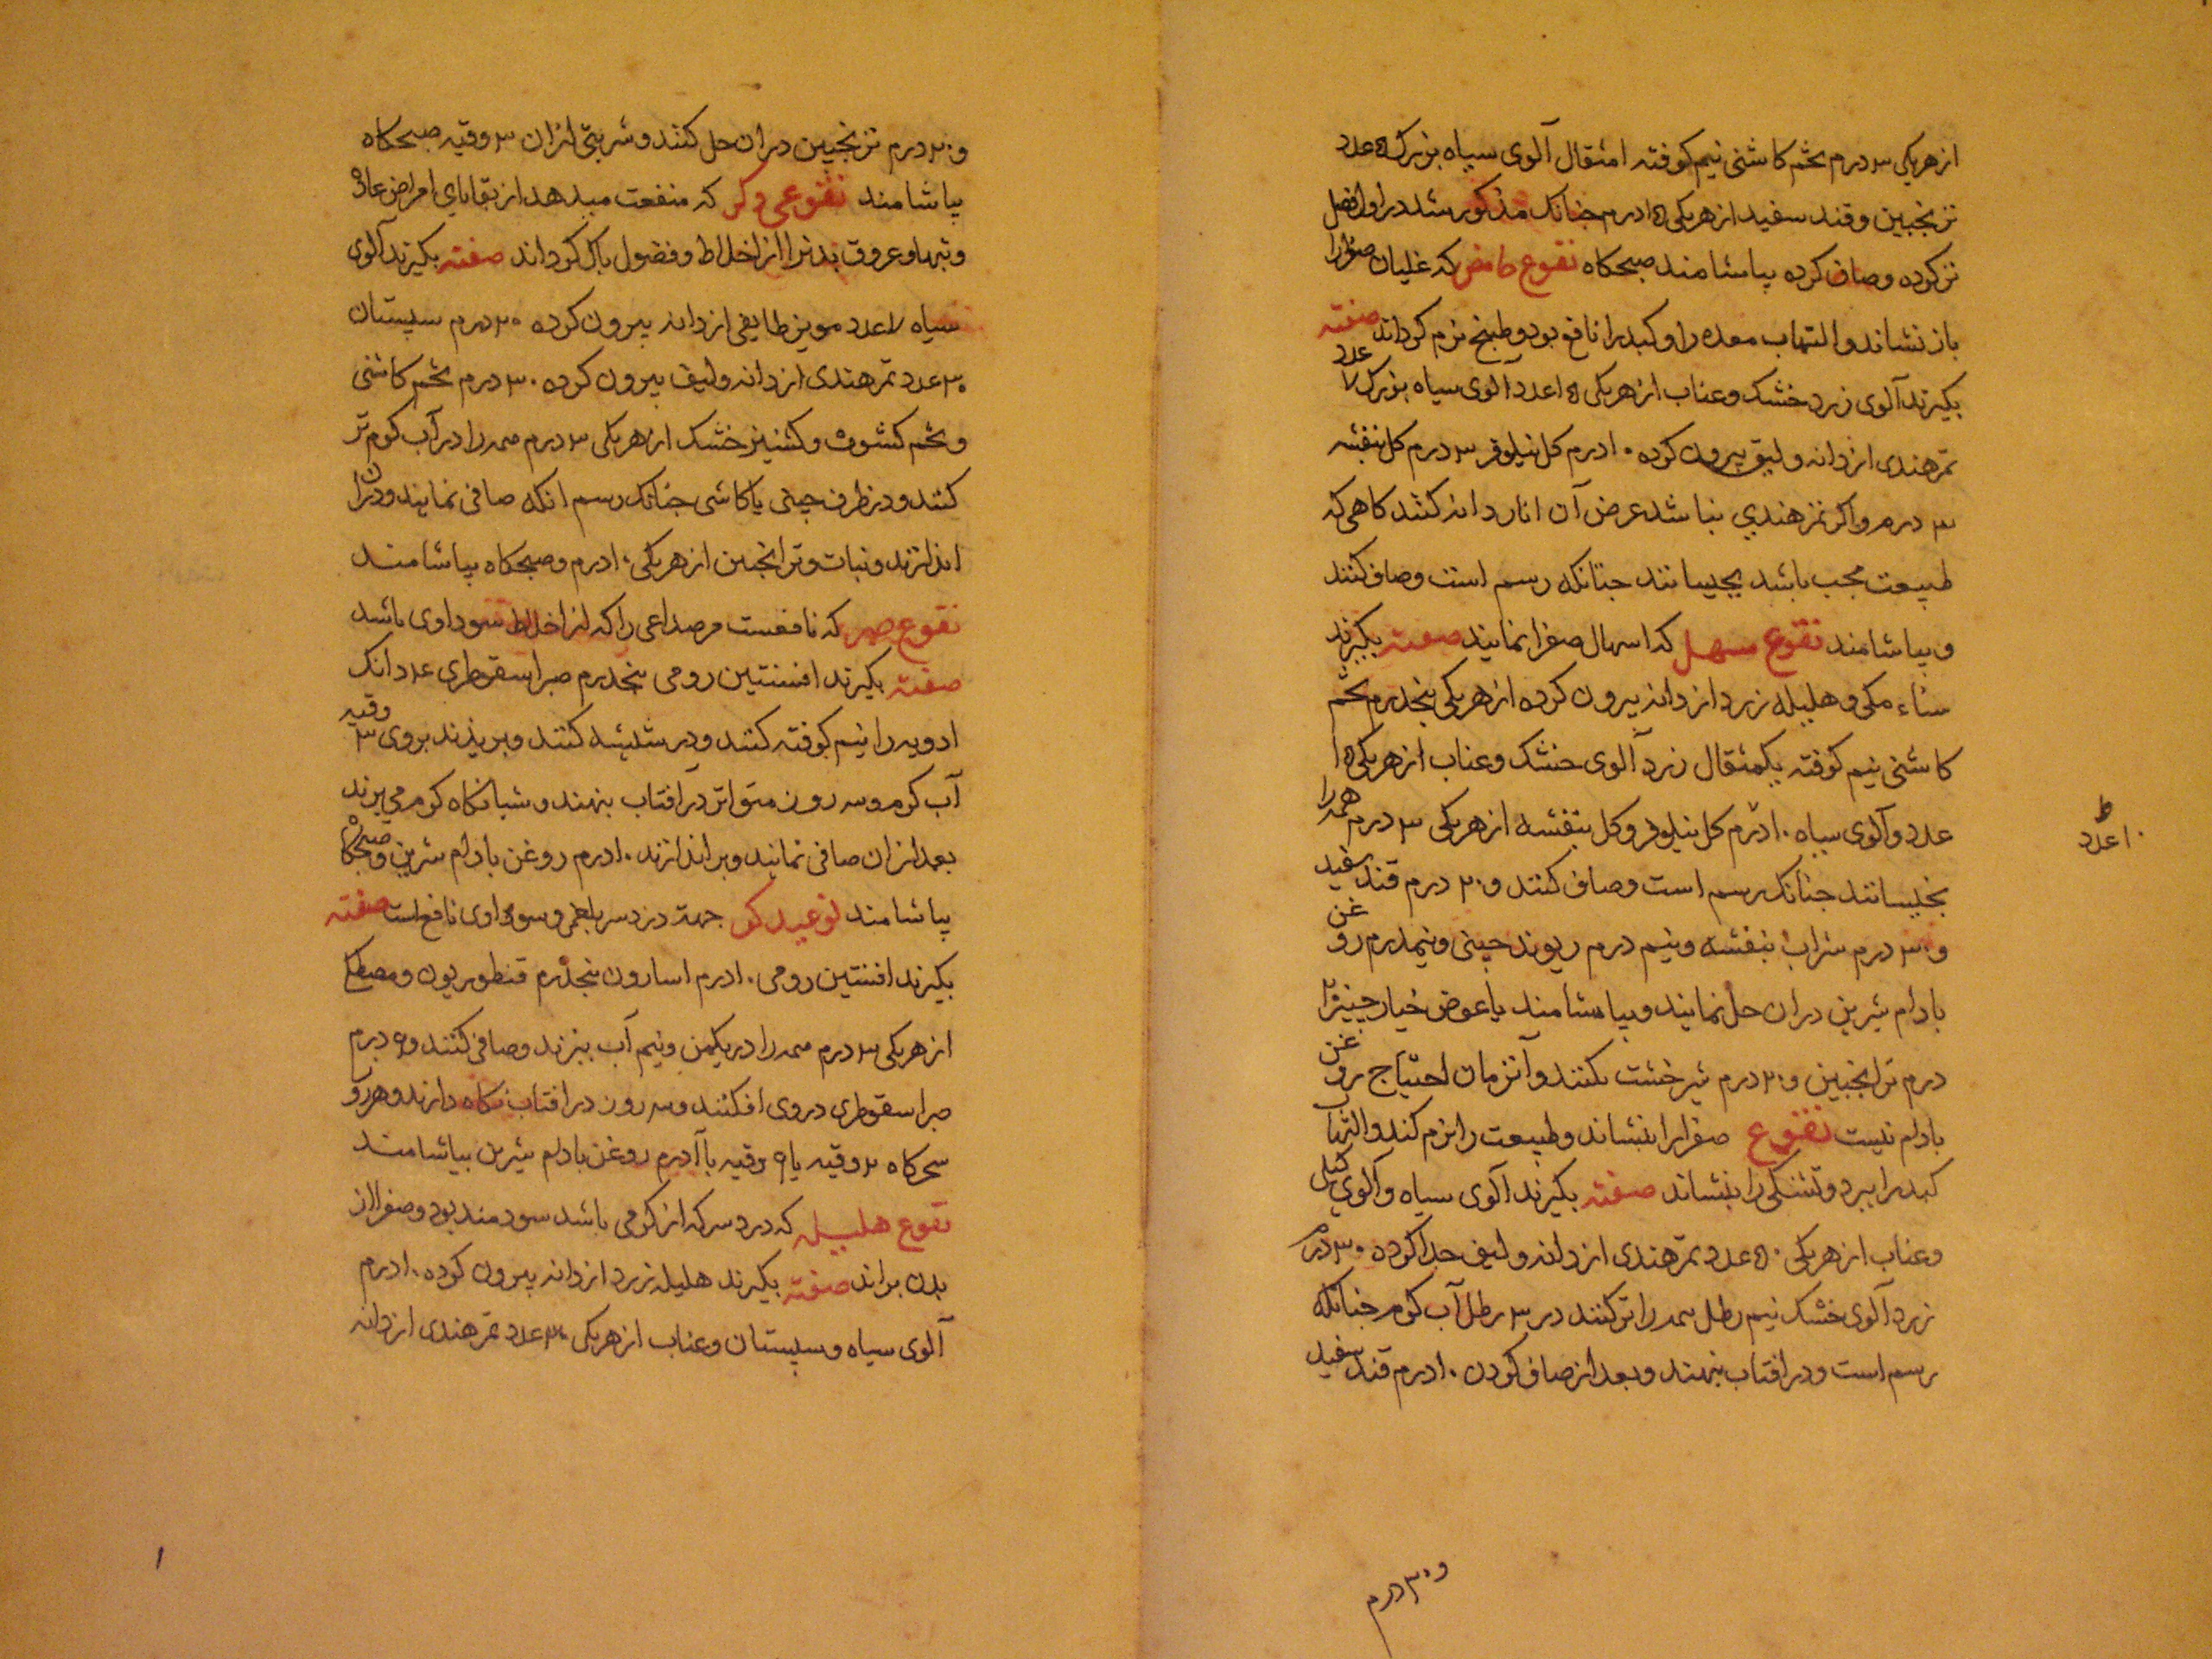 از هر یکی ۳ درم تخم کاشنی نیم کوفته ا مثقال آلوی سیاه بزرک ۵ عدد
ترنجبین و قند سفید از هر یکی ۱۵ درم چنانک مذکور شد در اول فصل
تر کرده و صاف کرده بیاشامند صبحکاه نقوع حامض که غلیان صفرا را
باز نشاند و التهاب معده را و کبد را نافع بود و طبع نرم کرداند صفته
بکیرند آلوی زرد خشک و عناب از هر یکی ۱۵ عدد آلوی سیاه بزرک ۷ عدد
تمر هندی از دانه و لیف بیرون کرده ۱۰ درم کل نیلوفر ۳ درم کل بنفشه
۳ درم و اکر تمر هندی نباشد عوض آن انار دانه کنند کاهی که
طبیعت مجیب باشد بخیسانند چنانکه رسم است و صاف کنند
و بیاشامند نقوع مسهل که اسهال صفرا نمایند صفته بکیرند
سناء مکی و هلیله زرد از دانه بیرون کرده از هر یکی پنجدرم تخم
کاشنی نیم کوفته یکمثقال زرد آلوی خشک و عناب از هر یکی ۱۵
عدد و آلوی سیاه ۱۰ درم کل نیلوفر و کل بنفشه از هر یکی ۳ درم همه را
ط
۱۰ عدد
بخیسانند چنانک رسم است و صاف کنند و ۲۰ درم قند سفید
و ۳۰ درم شراب بنفشه و نیم درم ریوند چینی و نیمدرم روغن
بادام شیرین در ان حل نمایند و بیاشامند یا عوض خیار چنبر ۲۰
درم ترانجبین و ۲۰ درم شیر خشت کنند و آنزمان احتیاج روغن
بادام نیست نقوع صفرا را بنشاند و طبیعت را نرم کند و التهاب
کبد را ببرد و تشنکی را بنشاند صفته بکیرند آلوی سیاه و آلوی کیلی
و عناب از هر یکی ۵۰ عدد تمر هندی از دانه و لیف جدا کرده ۳۰ درم
زرد آلوی خشک نیم رطل همه را تر کنند در ۳ رطل آب کرم چنانکه
رسم است و در افتاب بنهند و بعد از صاف کردن ۱۰ درم قند سفید
و ۳۰ درم
و ۳۰ درم ترنجبین در ان حل کنند و شربتی از ان ۳ وقیه صبحکاه
بیاشامند نقوعی دکر که منفعت میدهد از بقایای امراض حاده
و تبها و عروق بدنرا از اخلاط و فضول پاک کرداند صفته بکیرند آلوی
سیاه ۷ عدد مویز طایفی از دانه بیرون کرده ۲۰ درم سپستان
۳۰ عدد تمر هندی از دانه و لیف بیرون کرده ۳۰ درم تخم کاشنی
و تخم کشوث و کشنیز خشک از هر یکی ۳ درم همه را در آب کرم تر
کنند و در ظرف چینی یا کاشی چنانک رسم انکه صافی نمایند و در ان
اندازند و نبات و ترانجبین از هر یکی ۱۰ درم و صبحکاه بیاشامند
نقوع صبر که نافعست مر صداعی را که از اخلاط سوداوی باشد
صفته بکیرند افسنتین رومی پنجدرم صبر اسقوطری ۴ دانک
ادویه را نیم کوفته کنند و در شیشه کنند و بریزند بروی ۳ وقیه
آب کرم و سه روز متواتر در آفتاب بنهند و شبانکاه کرم می برند
بعد از ان صافی نمایند و بر اندازند ۱۰ درم روغن بادام شیرین و صبحکاه
بیاشامند نوعی دکر جهة درد سر بلغمی و سوداوی نافع است صفته
بکیرند افسنتین رومی ۱۰ درم اسارون پنجدرم قنطوریون و مصطکی
از هر یکی ۳ درم همه را در یکمن و نیم آب بپزند و صافی کنند و ۹ درم
صبر اسقوطری در وی افکنند و سه روز در افتاب نکاه دارند و هر روز
سحرکاه ۲ وقیه یا ۹ وقیه با ۲ درم روغن بادام شیرین بیاشامند
نقوع هلیله که درد سر که از کرمی باشد سودمند بود و صفرا از
بدن براند صفته بکیرند هلیله زرد از دانه بیرون کرده ۱۰ درم
آلوی سیاه و سپستان و عناب از هر یکی ۳۰ عدد تمر هندی از دانه
۱